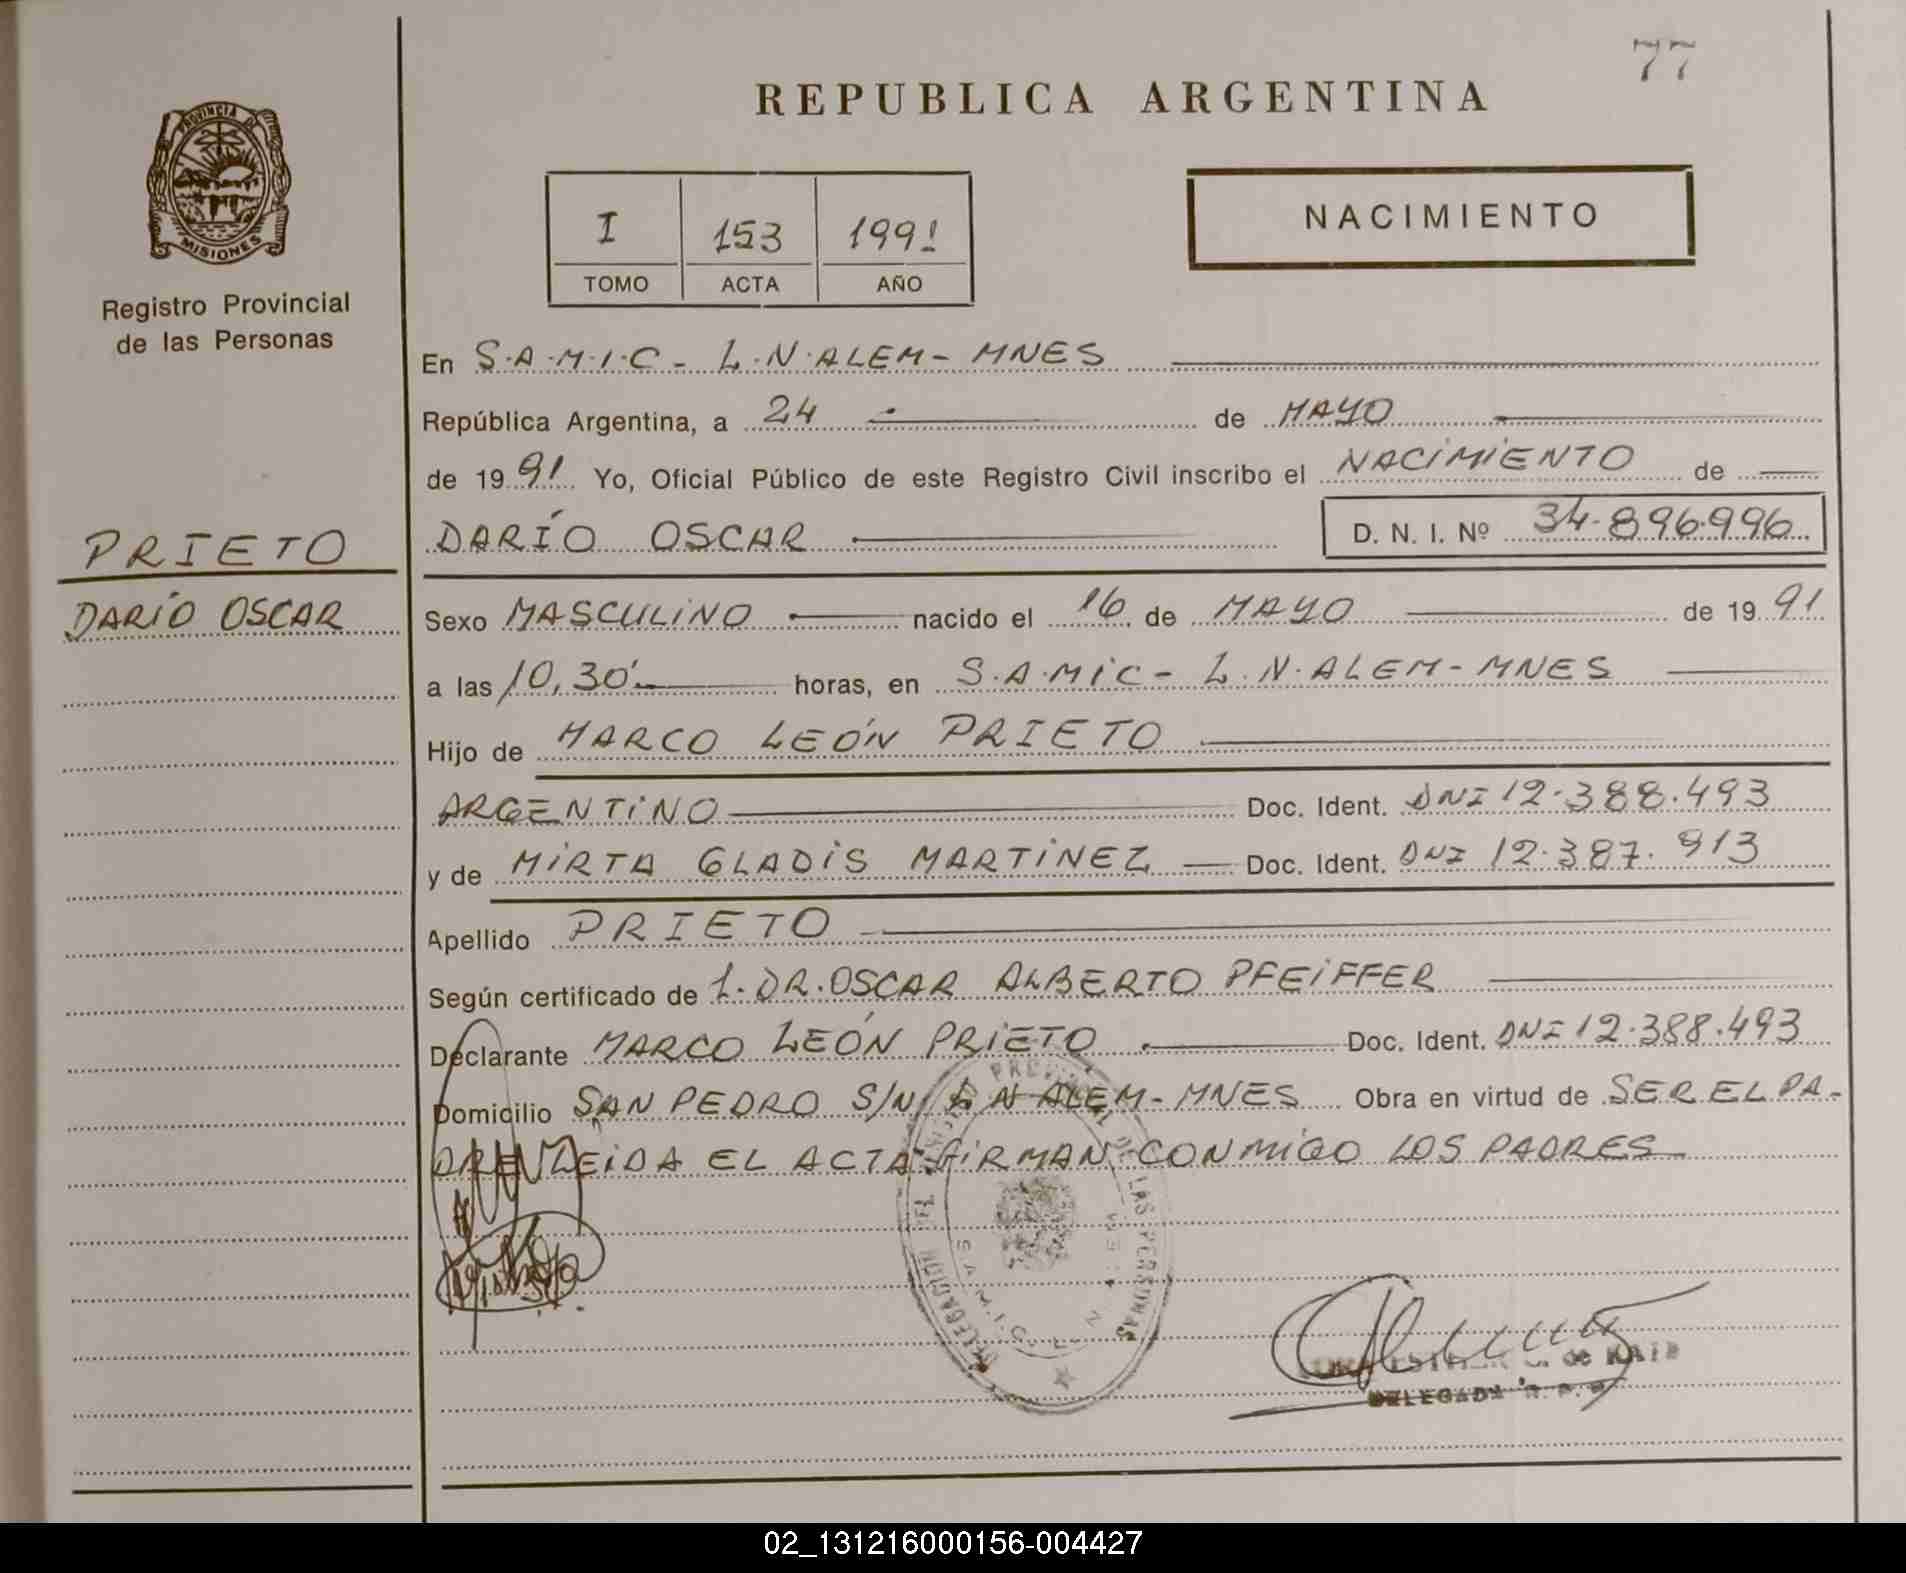 77
REPUBLICA ARGENTINA
PROVINCIA DE
MISIONES
Registro Provincial
de las Personas
I 153 1991
TOMO ACTA AÑO
NACIMIENTO
En S.A.M.I.C - L.N.ALEM - MNES
República Argentina, a 24 de MAYO
de 1991 Yo, Oficial Público de este Registro Civil inscribo el NACIMIENTO de
DARÍO OSCAR D. N. I. Nº 34.896.996
PRIETO
DARÍO OSCAR
Sexo MASCULINO nacido el 16 de MAYO de 1991
a las 10,30' horas, en S.A.MIC - L.N.ALEM - MNES
Hijo de MARCO LEÓN PRIETO
ARGENTINO Doc. Ident. DNI 12.388.493
y de MIRTA GLADIS MARTINEZ Doc. Ident. DNI 12.387.913
Apellido PRIETO
Según certificado de 1. DR. OSCAR ALBERTO PFEIFFER
Declarante MARCO LEÓN PRIETO Doc. Ident. DNI 12.388.493
Domicilio SAN PEDRO S/N L N ALEM - MNES Obra en virtud de SER EL PA-
DRE LEIDA EL ACTA FIRMAN CONMIGO LOS PADRES
DELEGACION
LAS PERSONAS
S.A.M.I.C.
de KAIR
DELEGADA R. P. P.
02_131216000156-004427